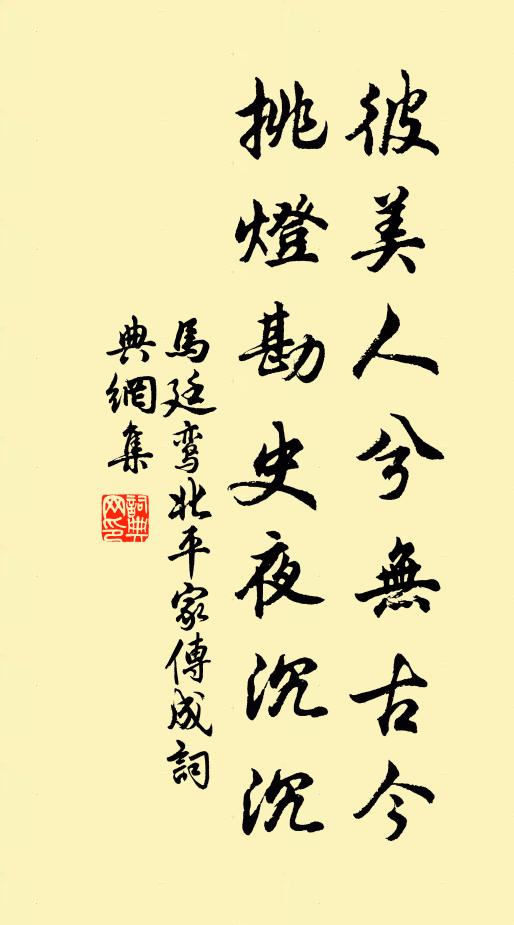 彼美人兮無古今
挑燈勘史夜沉沉
馬廷鸾北平家傳成詞
典網集
詞典网印